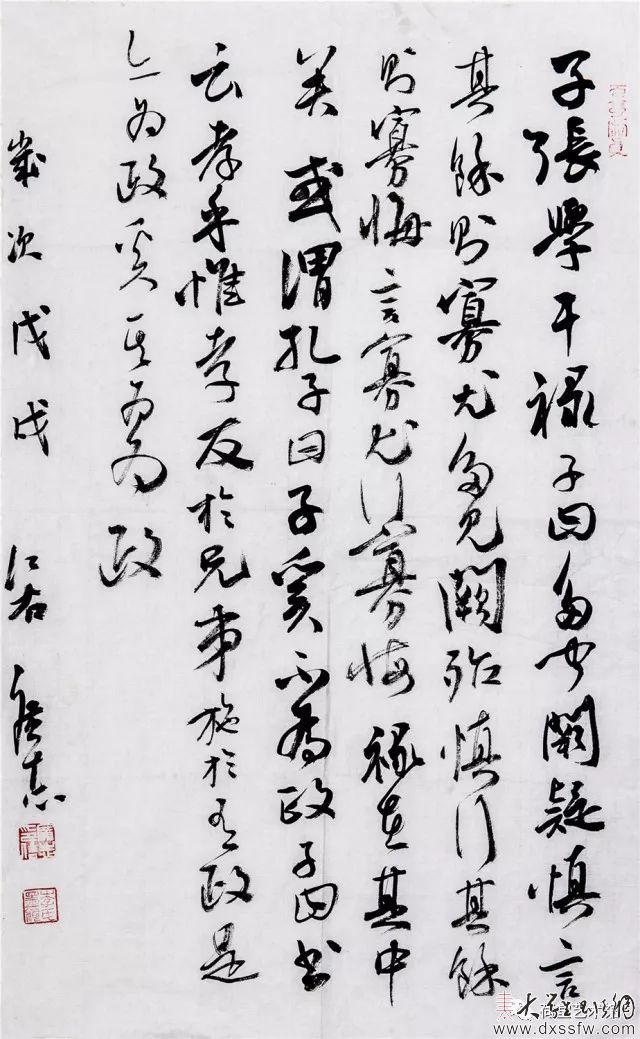 子張學干祿子曰多聞闕疑慎言
其餘則寡尤多見闕殆慎行其餘
則寡悔言寡尤行寡悔祿在其中
矣或謂孔子曰子奚不為政子曰書
云孝乎惟孝友於兄弟施於有政是
亦為政奚其為為政
歲次戊戌 江右
www.dxssfw.com